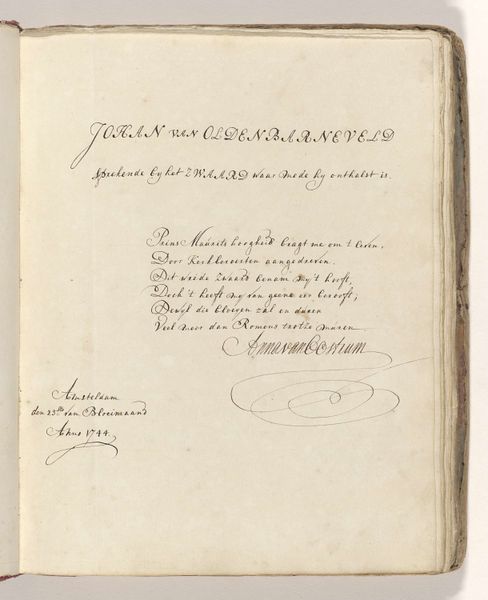 JOHAN VAN OLDENBARNEVELD
sprekende by het ZWAARD waar mede hy onthalst is.
Prins Maurits hoogheid bragt me om 't leven,
Door Kerktwisten aangedreven.
Dit wrede zwaard benam my 't hooft,
Doch 't heeft my van geene eer berooft;
Dewyl die bloeien zal en duren
Veel meer dan Romens trotze muren
Anna van
Amsteldam
den 23ste van Bloeimaand
Anno 1744.